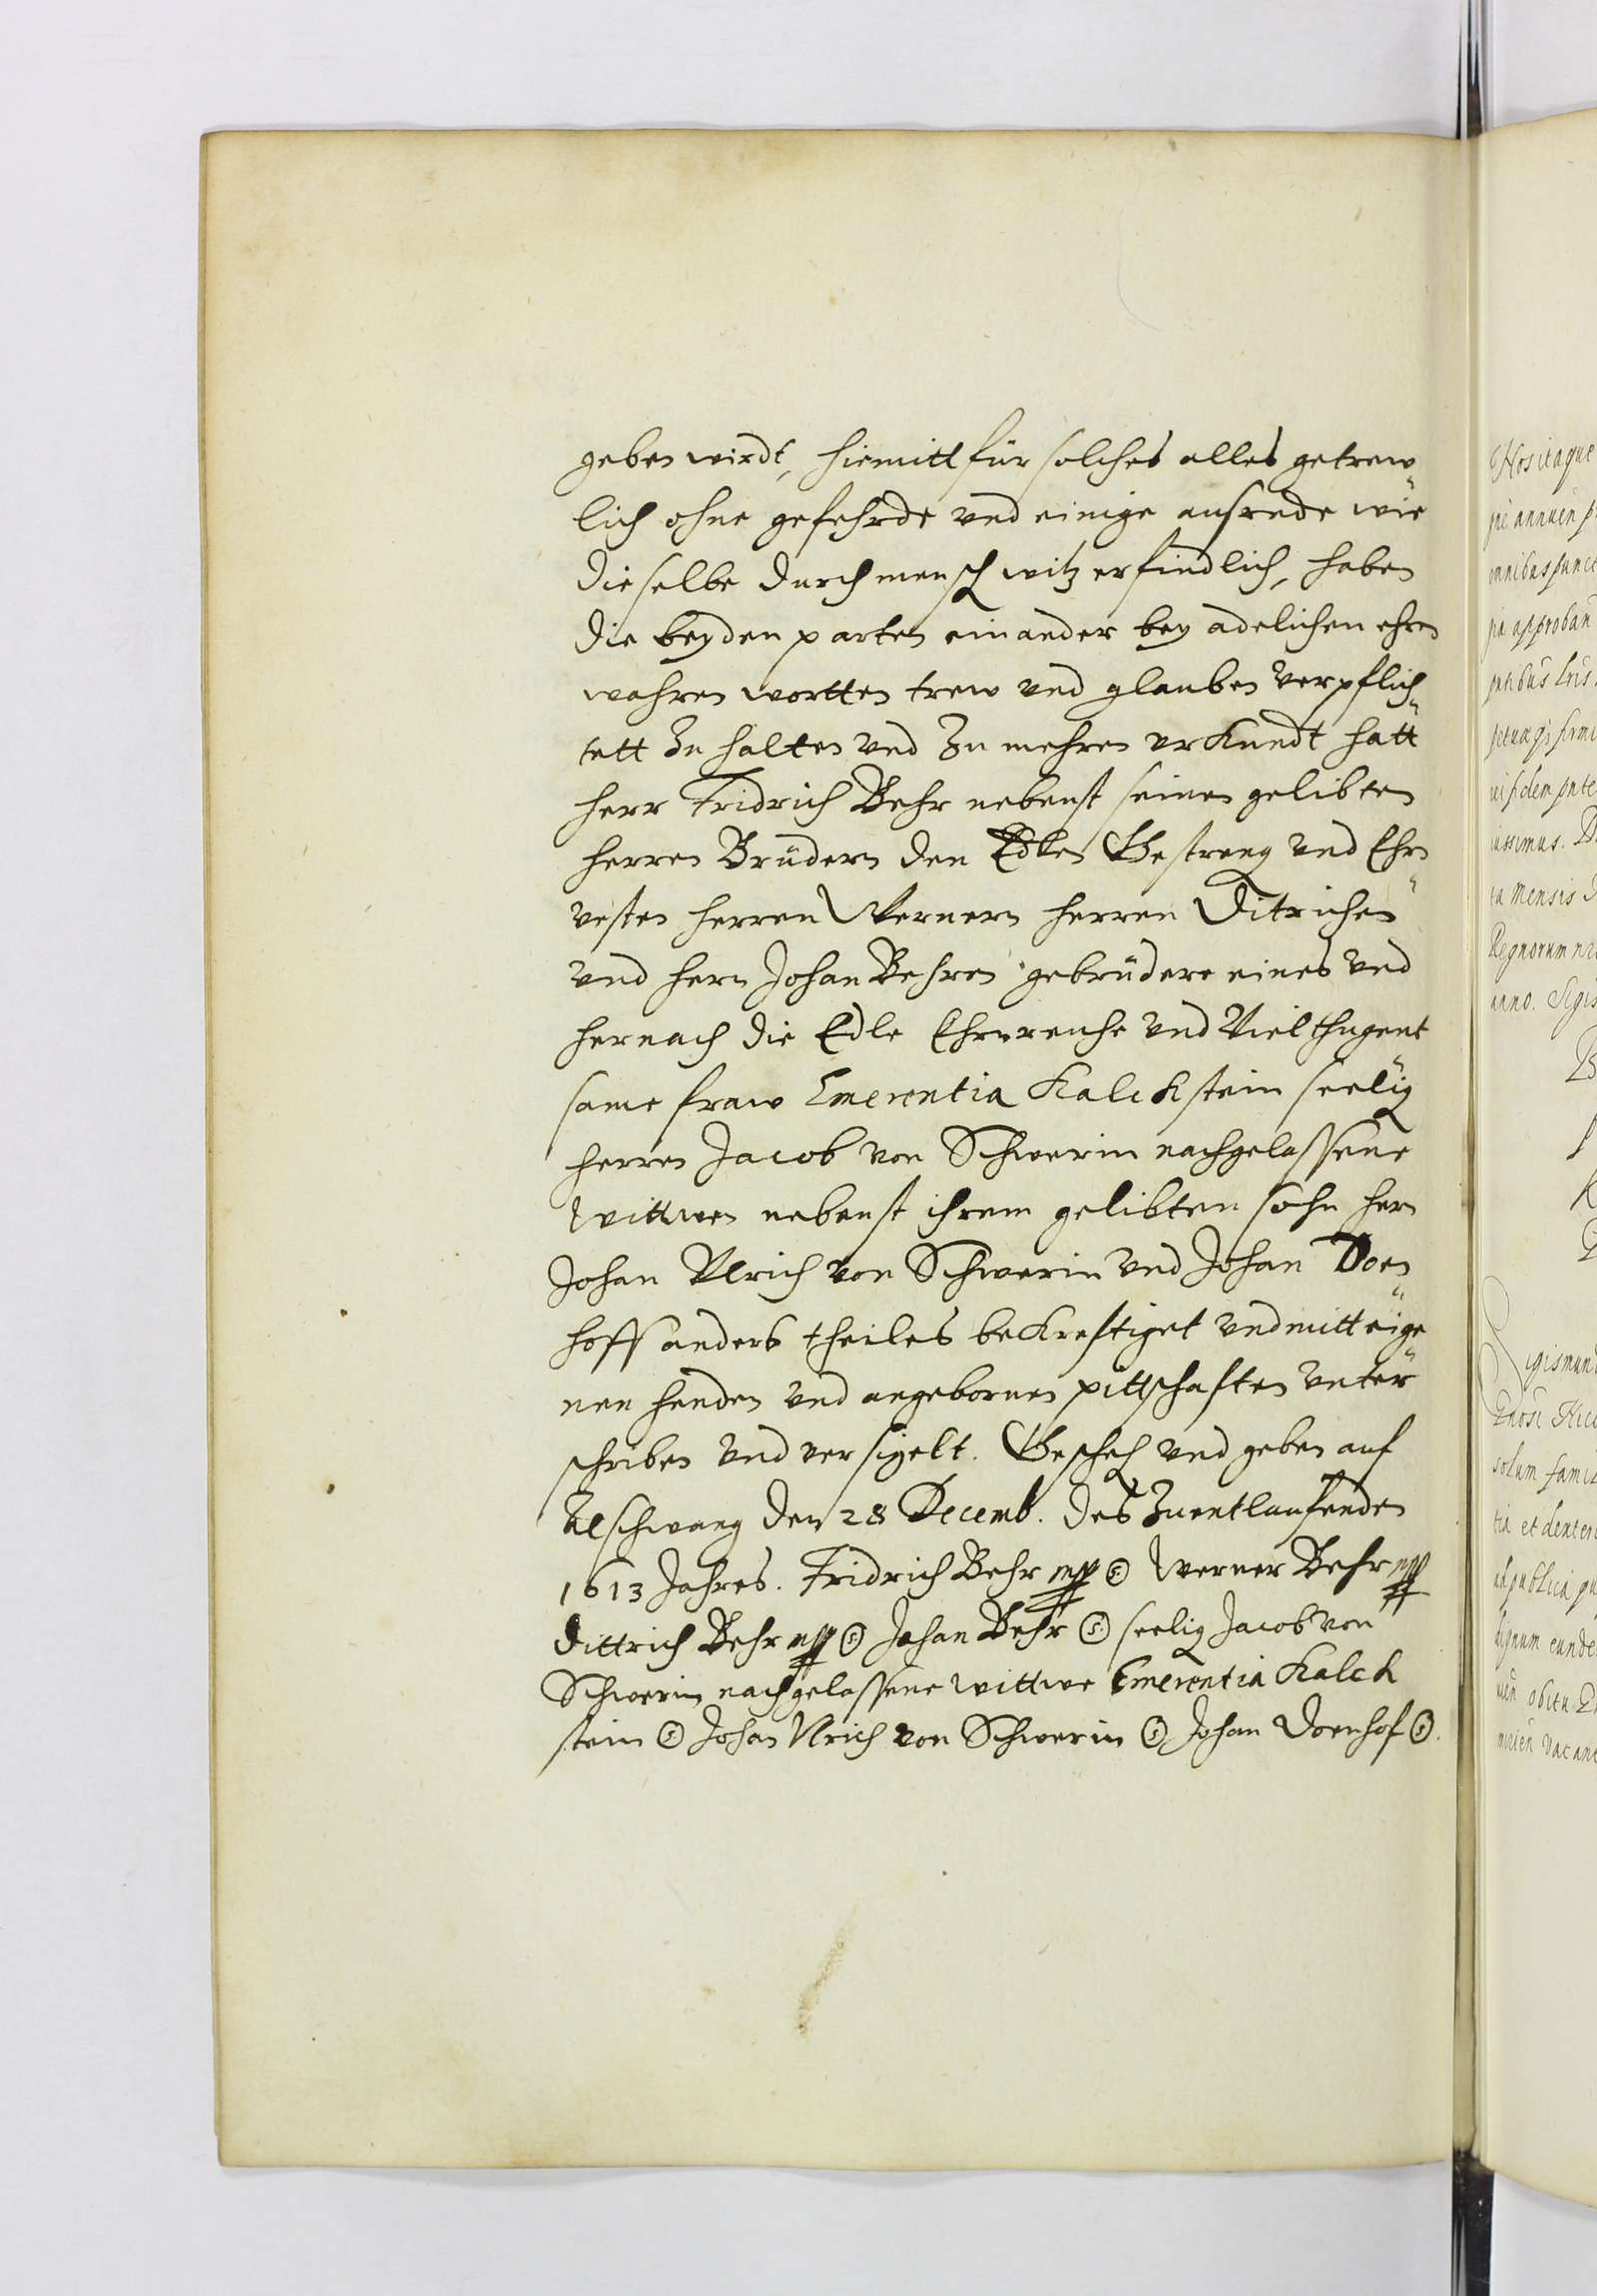 geben wirdt, hiemitt für solches alles getrew
lich ohne gefehrde vnd einige ausrede wie
dieselbe durch mensch witz erfindlich, haben
die beyden parten einander bey adelichen ehren
wahren wortten trew vnd glauben verpflich
tett zu halten vnd zu mehren vrkundt hatt
herr Fridrich Behr nebenst seinen gelibten
herren Brüdern den Edlen Gestreng vnd Ehrn
vesten herren Wernern herren Ditrichen
vnd hern Johan Behren gebrüdere eines vnd
hernach die Edle Ehrnreiche vnd Viel thugent
same fraw Emerentia Kalckstein seelig
herren Jacob von Schwerin nachgelassene
Wittwen nebenst ihrem gelibten sohn hern
Johan Vlrich von Schwerin vnd Johan Doen
hoff anders theiles bekreftiget vnd mitt eige
nen henden vnd angebornen pittschaften vnter
schriben vnd versigelt. Geschehen vnd geben auf
Alschwang den 28 Decemb. des zuentlaufenden
1613 Jahres. Fridrich Behr mpp (S) Werner Behr mpp
Dittrich Behr mpp (S) Johan Behr (S) seelig Jacob von
Schwerin nachgelassene wittwe Emerentia Kalck
stein (S) Johan Vlrich von Schwerin (S) Johan Doenhof (S).
Nos itaque
omnibus punct
approban
Mensis
Regnorum
anno. Sigis
igismun
solum fami
et dexter
publica
obitu
vacant